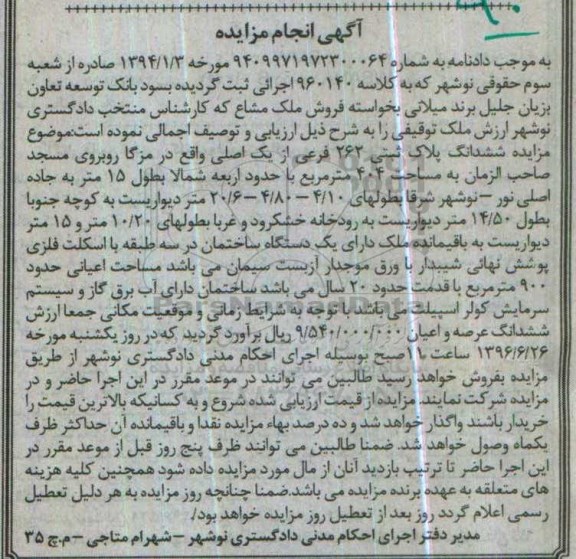 آگهی انجام مزایده
به موجب دادنامه به شماره ۹۴۰۹۹۷۱۹۷۲۳۰۰۰۶۴ مورخه ۱۳۹۴/۱/۳ صادره از شعبه
سوم حقوقی نوشهر که به کلاسه ۹۶۰۱۴۰ اجرائی ثبت گردیده بسود بانک توسعه تعاون
بزیان جلیل برند میلانی بخواسته فروش ملک مشاع که کارشناس منتخب دادگستری
نوشهر ارزش ملک توقیفی را به شرح ذیل ارزیابی و توصیف اجمالی نموده است:موضوع
مزایده ششدانگ پلاک ثبتی ۲۶۲ فرعی از یک اصلی واقع در مزگا روبروی مسجد
صاحب الزمان به مساحت ۴۰۴ مترمربع با حدود اربعه شمالا بطول ۱۵ متر به جاده
اصلی نور –نوشهر شرقا بطولهای ۴/۱۰ – ۴/۸۰ – ۲۰/۶ متر دیواریست به کوچه جنوبا
بطول ۱۴/۵۰ متر دیواریست به رودخانه خشکرود و غربا بطولهای ۱۰/۲۰ متر و ۱۵ متر
دیواریست به باقیمانده ملک دارای یک دستگاه ساختمان در سه طبقه با اسکلت فلزی
پوشش نهائی شیبدار با ورق موجدار آزبست سیمان می باشد مساحت اعیانی حدود
۹۰۰ مترمربع با قدمت حدود ۲۰ سال می باشد ساختمان دارای آب برق گاز و سیستم
سرمایش کولر اسپیلت می باشد با توجه به شرایط زمانی و موقعیت مکانی جمعا ارزش
ششدانگ عرصه و اعیان ۹/۵۴۰/۰۰۰/۰۰۰ ریال برآورد گردید که در روز یکشنبه مورخه
۱۳۹۶/۶/۲۶ ساعت ۱۱صبح بوسیله اجرای احکام مدنی دادگستری نوشهر از طریق
مزایده بفروش خواهد رسید طالبین می توانند در موعد مقرر در این اجرا حاضر و در
مزایده شرکت نمایند. مزایده از قیمت ارزیابی شده شروع و به کسانیکه بالاترین قیمت را
خریدار باشند واگذار خواهد شد و ده درصد بهاء مزایده نقدا و باقیمانده آن حداکثر ظرف
یکماه وصول خواهد شد. ضمنا طالبین می توانند ظرف پنج روز قبل از موعد مقرر در
این اجرا حاضر تا ترتیب بازدید آنان از مال مورد مزایده داده شود همچنین کلیه هزینه
های متعلقه به عهده برنده مزایده می باشد.ضمنا چنانچه روز مزایده به هر دلیل تعطیل
رسمی اعلام گردد روز بعد از تعطیل روز مزایده خواهد بود./
مدیر دفتر اجرای احکام مدنی دادگستری نوشهر –شهرام متاجی –م.چ ۳۵